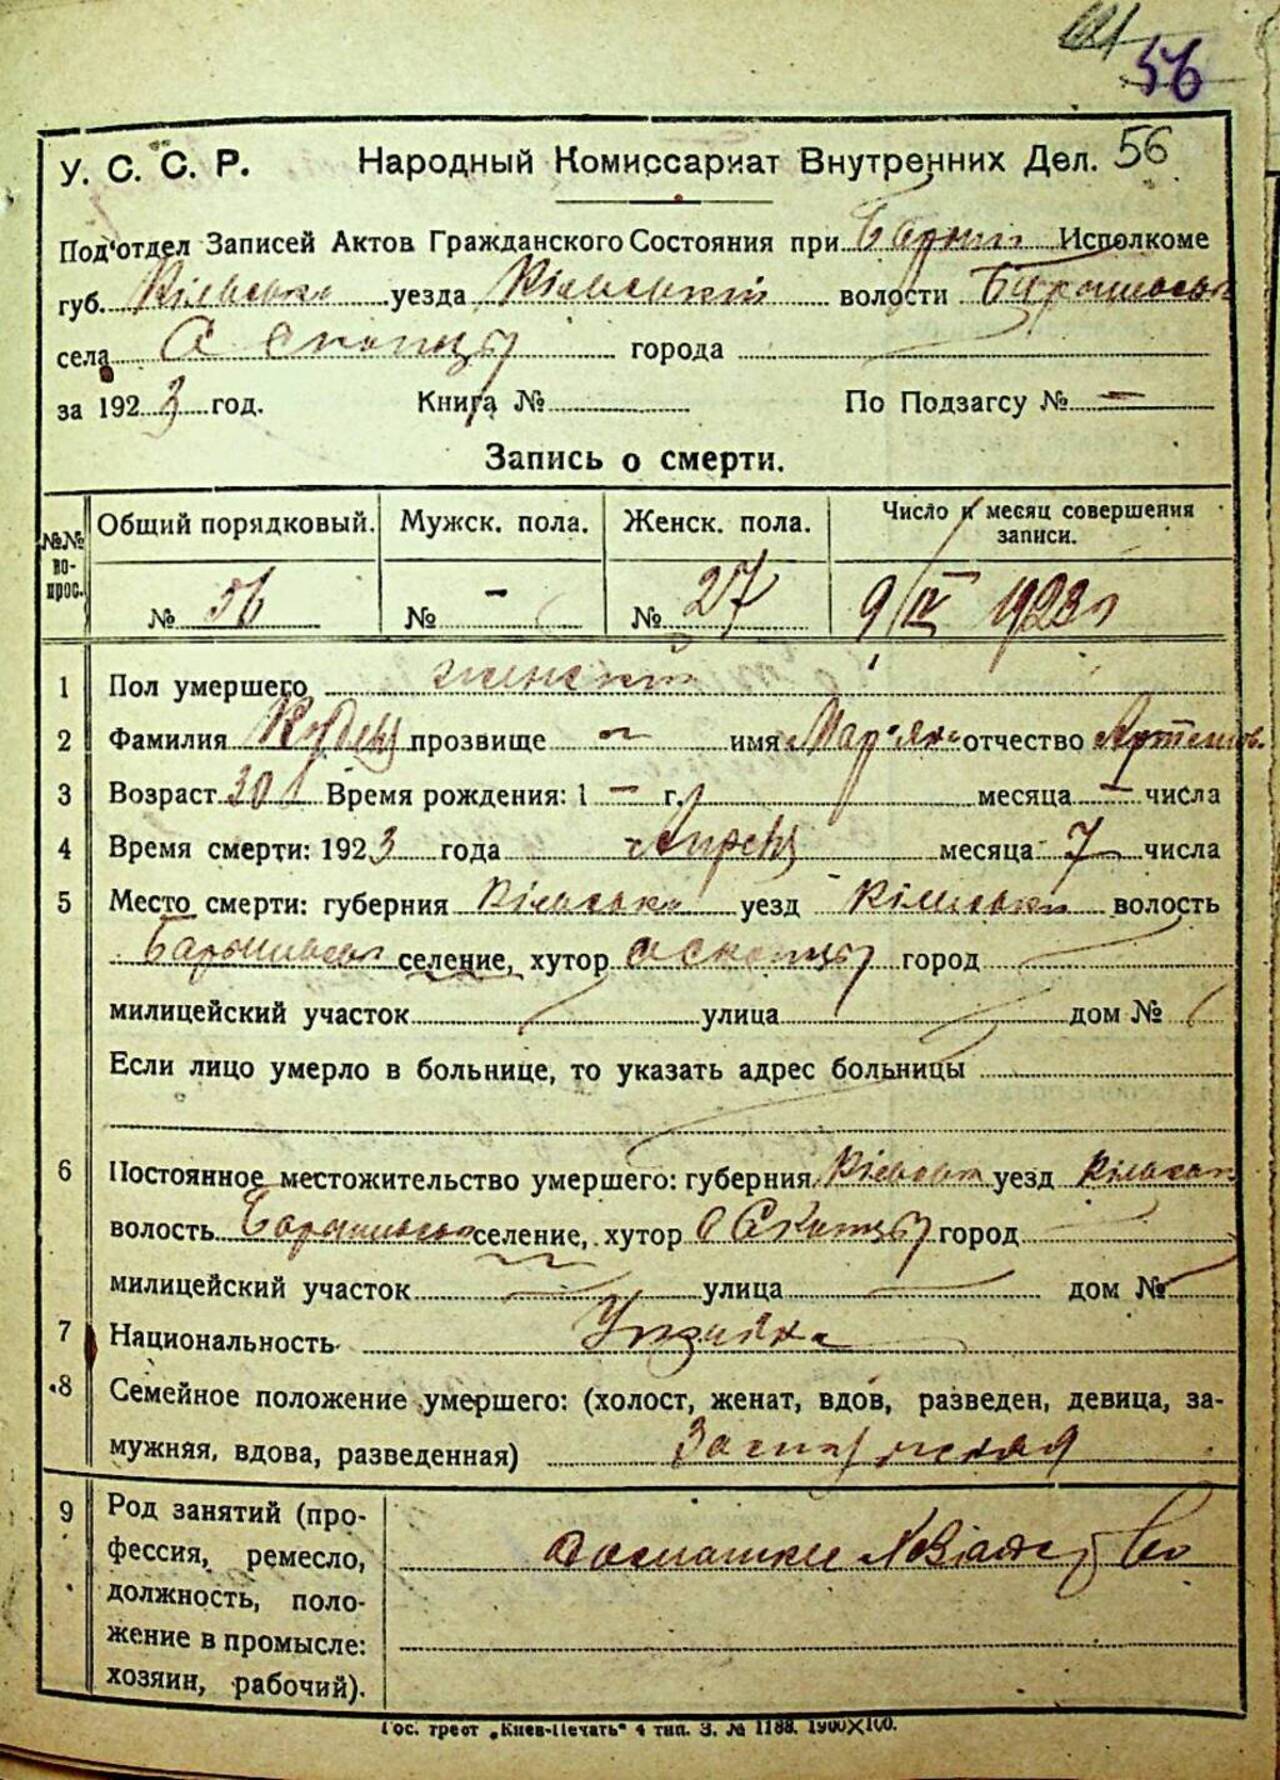 56
У. С. С. Р. Народный Комиссариат Внутренних Дел. 56
Под'отдел Записей Актов Гражданского Состояния при Исполкоме
губ. Київська уезда Київський волости
села С Скопцы города
за 1923 год. Книга № По Подзагсу № —
Запись о смерти.
№№ вопрос. Общий порядковый. Мужск. пола. Женск. пола. Число и месяц совершения
записи.
№ 56 № - № 27 9/IV 1923 г
1 Пол умершего женский
2 Фамилия прозвище — имя Мар'яна отчество Артемов.
3 Возраст 30 Время рождения: 1 — г. месяца — числа
4 Время смерти: 1923 года месяца 7 числа
5 Место смерти: губерния Київська уезд Київський волость
селение, хутор С Скопцы город
милицейский участок улица дом №
Если лицо умерло в больнице, то указать адрес больницы
6 Постоянное местожительство умершего: губерния Київська уезд
волость селение, хутор С Скопцы город
милицейский участок улица дом №
7 Национальность
8 Семейное положение умершего: (холост, женат, вдов, разведен, девица, за-
мужняя, вдова, разведенная)
9 Род занятий (про-
фессия, ремесло,
должность, поло-
жение в промысле:
хозяин, рабочий).
Гос. трест „Киев-Печать" 4 тип. З. № 1188. 1900X100.